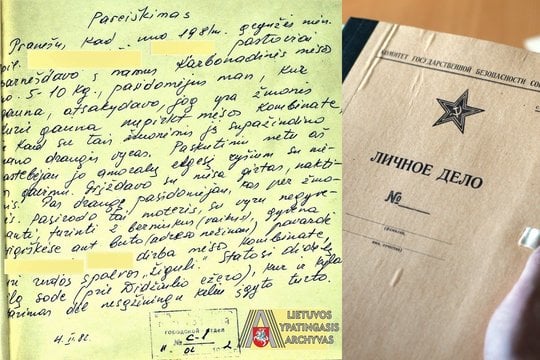 Pareiškimas
Pranešu, kad nuo 1981m. gegužės mėn.
pil. pastoviai
parnešdavo į namus karbonadinės mėsos
po 5-10 kg., pasidomėjus man, kur
gauna, atsakydavo, jog yra žmonės
kurie gauna nupirkt mėsos kombinate,
Kad su tais žmonėmis jį supažindino
mano draugis vycas. Paskutiniu metu aš
pastebėjau jo amoralų elgesį ryšium su mė-
gavimu. Grįždavo su mėsa girtas, naktį-
Pas draugę pasidomėjau, kas per žmo-
Pasirodo tai moteris, su vyru negyve-
nanti, turinti 2 berniukus (vaikus), gyvena
aut buto (adreso nežinau) pavardė
dirba mėsos kombinate,
spalvos „Žiguli" Statosi didelę
sode (prie Didžiulio ežero), kur ir kyla
dėl nesąžiningu keliu įgyto turto.
4.II.82.
ГОРОДСКОЙ ОТДЕЛ
№ С-1
LIETUVOS
YPATINGASIS
ARCHYVAS
КОМИТЕТ ГОСУДАРСТВЕННОЙ БЕЗОПАСНОСТИ СОЮ
ЛИЧНОЕ ДЕЛО
№